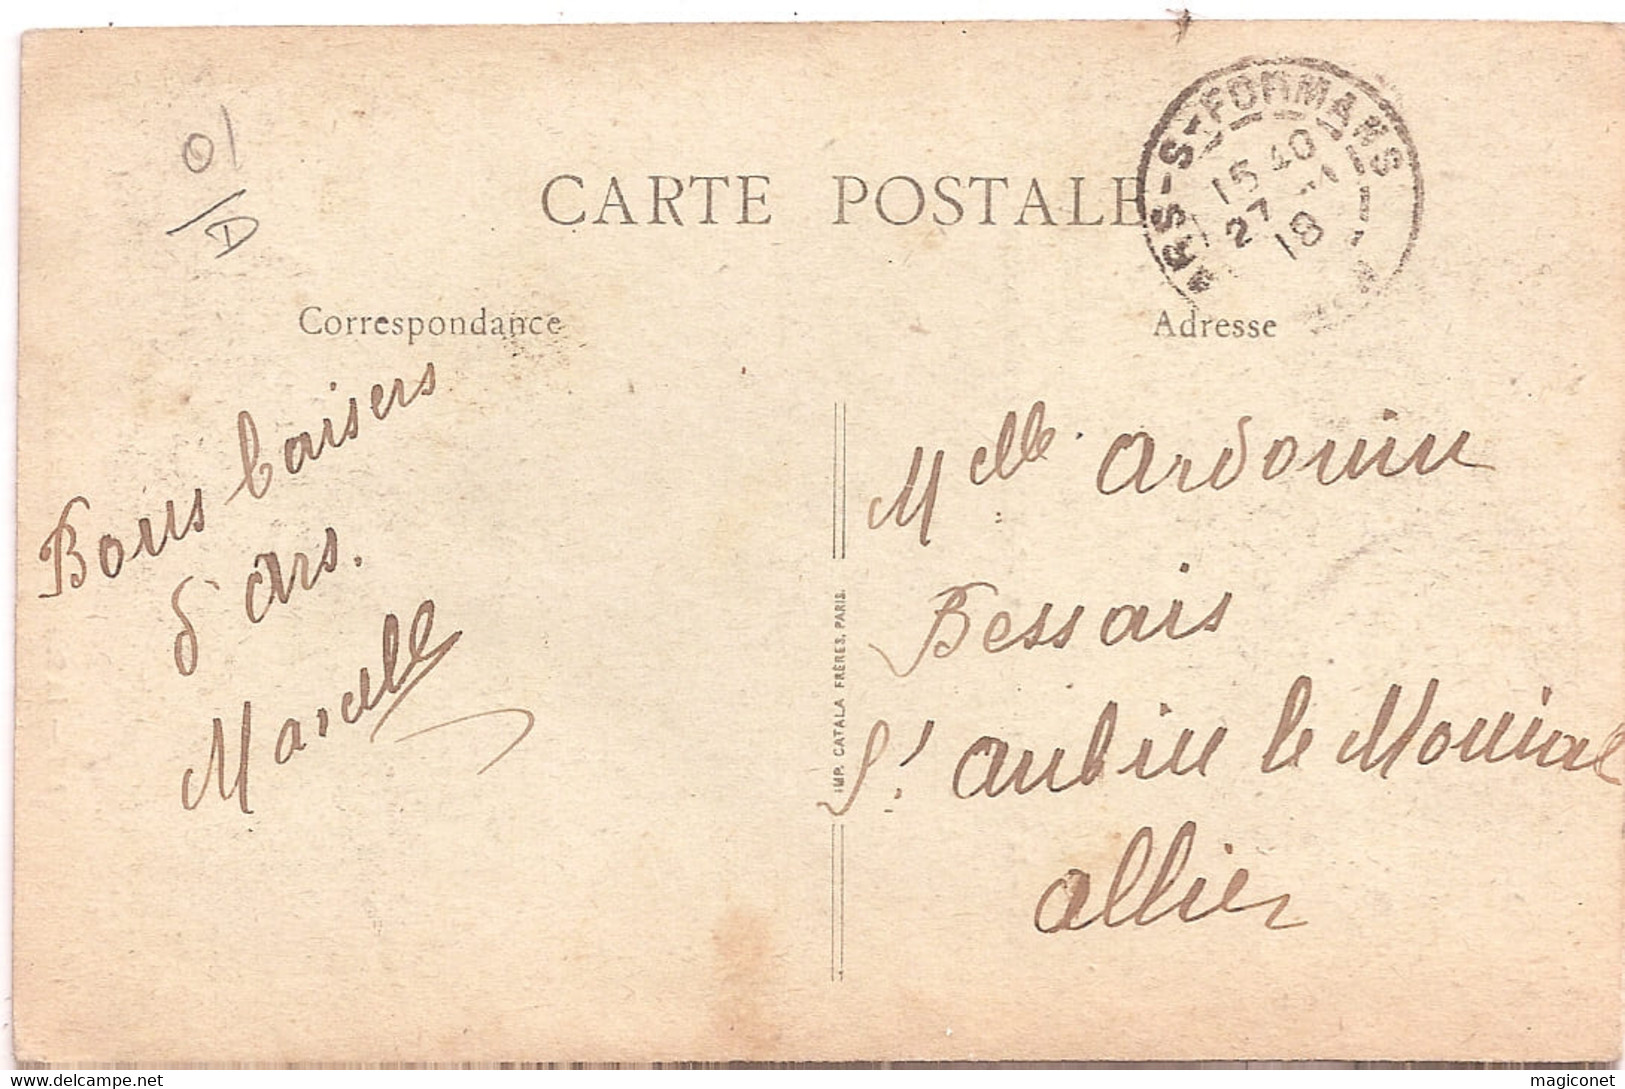 01
D
CARTE POSTALE
ARS-S-FORMANS
15 40
27
18
Correspondance
Adresse
Bons baisers
d'Ars.
Marcelle
IMP. CATALA FRÈRES, PARIS.
Melle Ardouin
Bessais
St Aubin le Monial
Allier
delcampe.net
magiconet